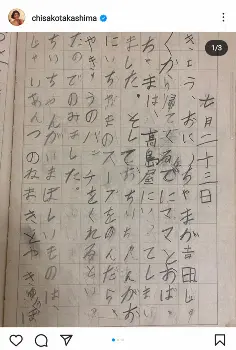 chisakotakashima
1/3
七月二十三日
きょう、おにいちゃまが吉田しょ
くから帰ってくるまでにママとおばあ
ちゃまは、高島屋に
ました。そしておちいちゃんがお
にいちゃまのスープをのんだら
やきゅうのバンチをくれるといっ
たのでのみました。
ちいちゃんがいまほしいものは、
じゃいあんつのねまきとやきゅうぼ